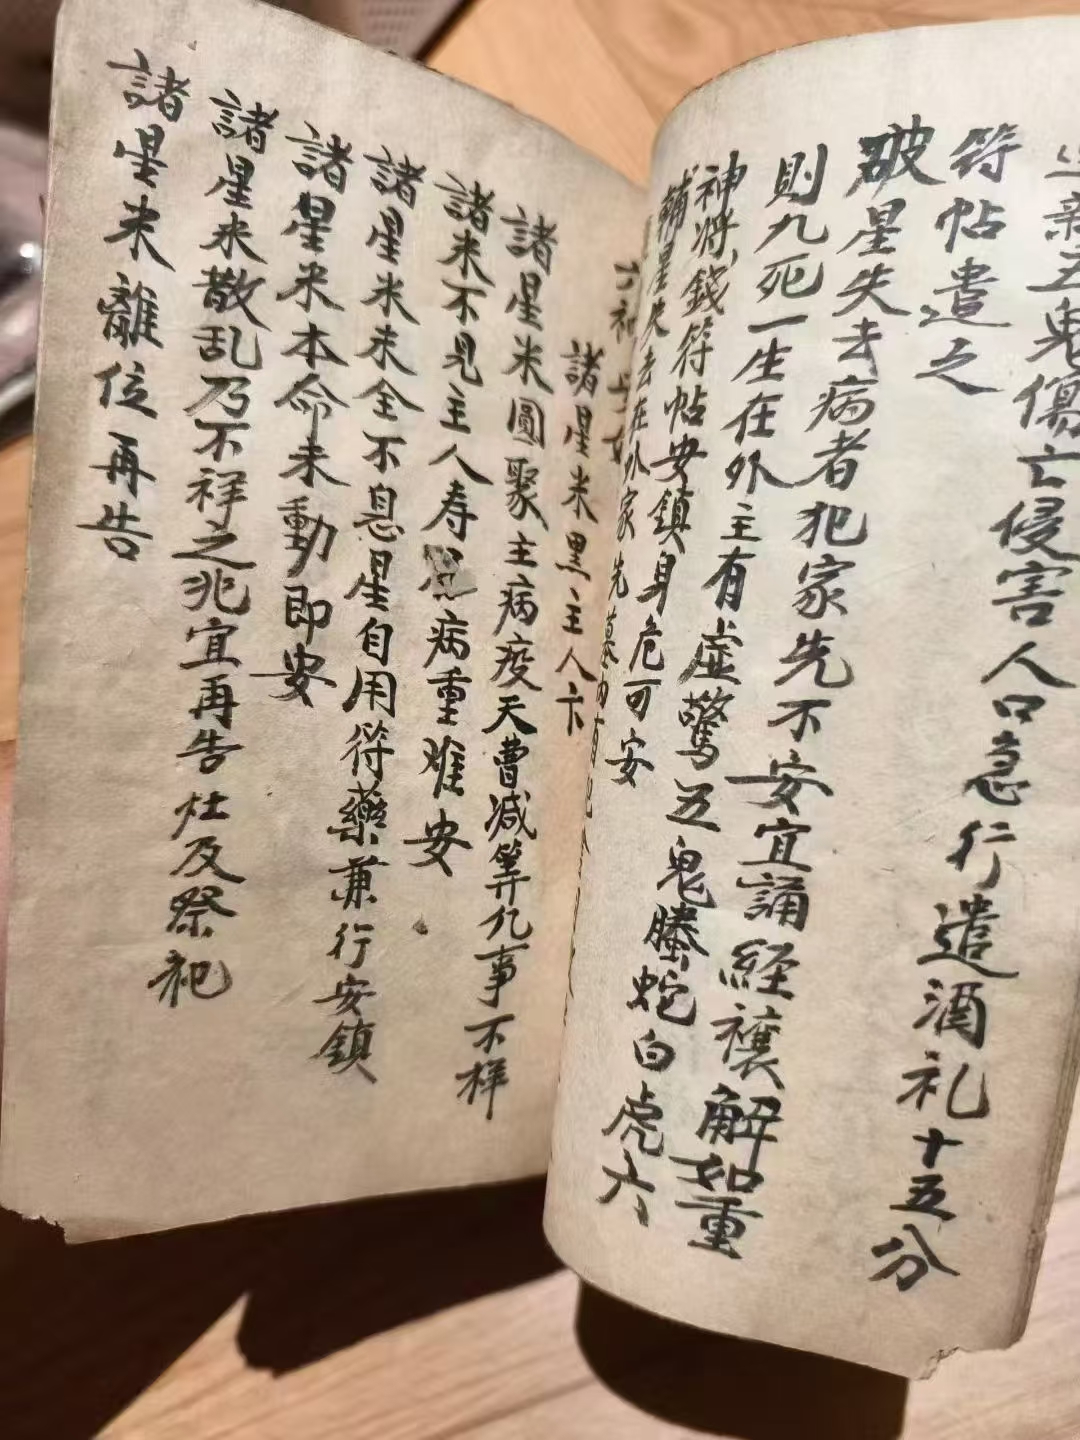 新五鬼傷亡侵害人口急行遣酒礼十五分
符帖遣之
破星失去病者犯家先不安宜誦經禳解如重
則九死一生在外主有虛驚五鬼螣蛇白虎六
神將錢符帖安鎮身危可安
輔星失去在外家先墓
六神
諸星米黑主人卞
諸星米圓聚主病疫天曹減筭亿事不祥
諸米不見主人寿病重难安
諸星米未全不息星自用符藥兼行安鎮
諸星米本命未動即安
諸星米散乱乃不祥之兆宜再告灶及祭祀
諸星米離位再告